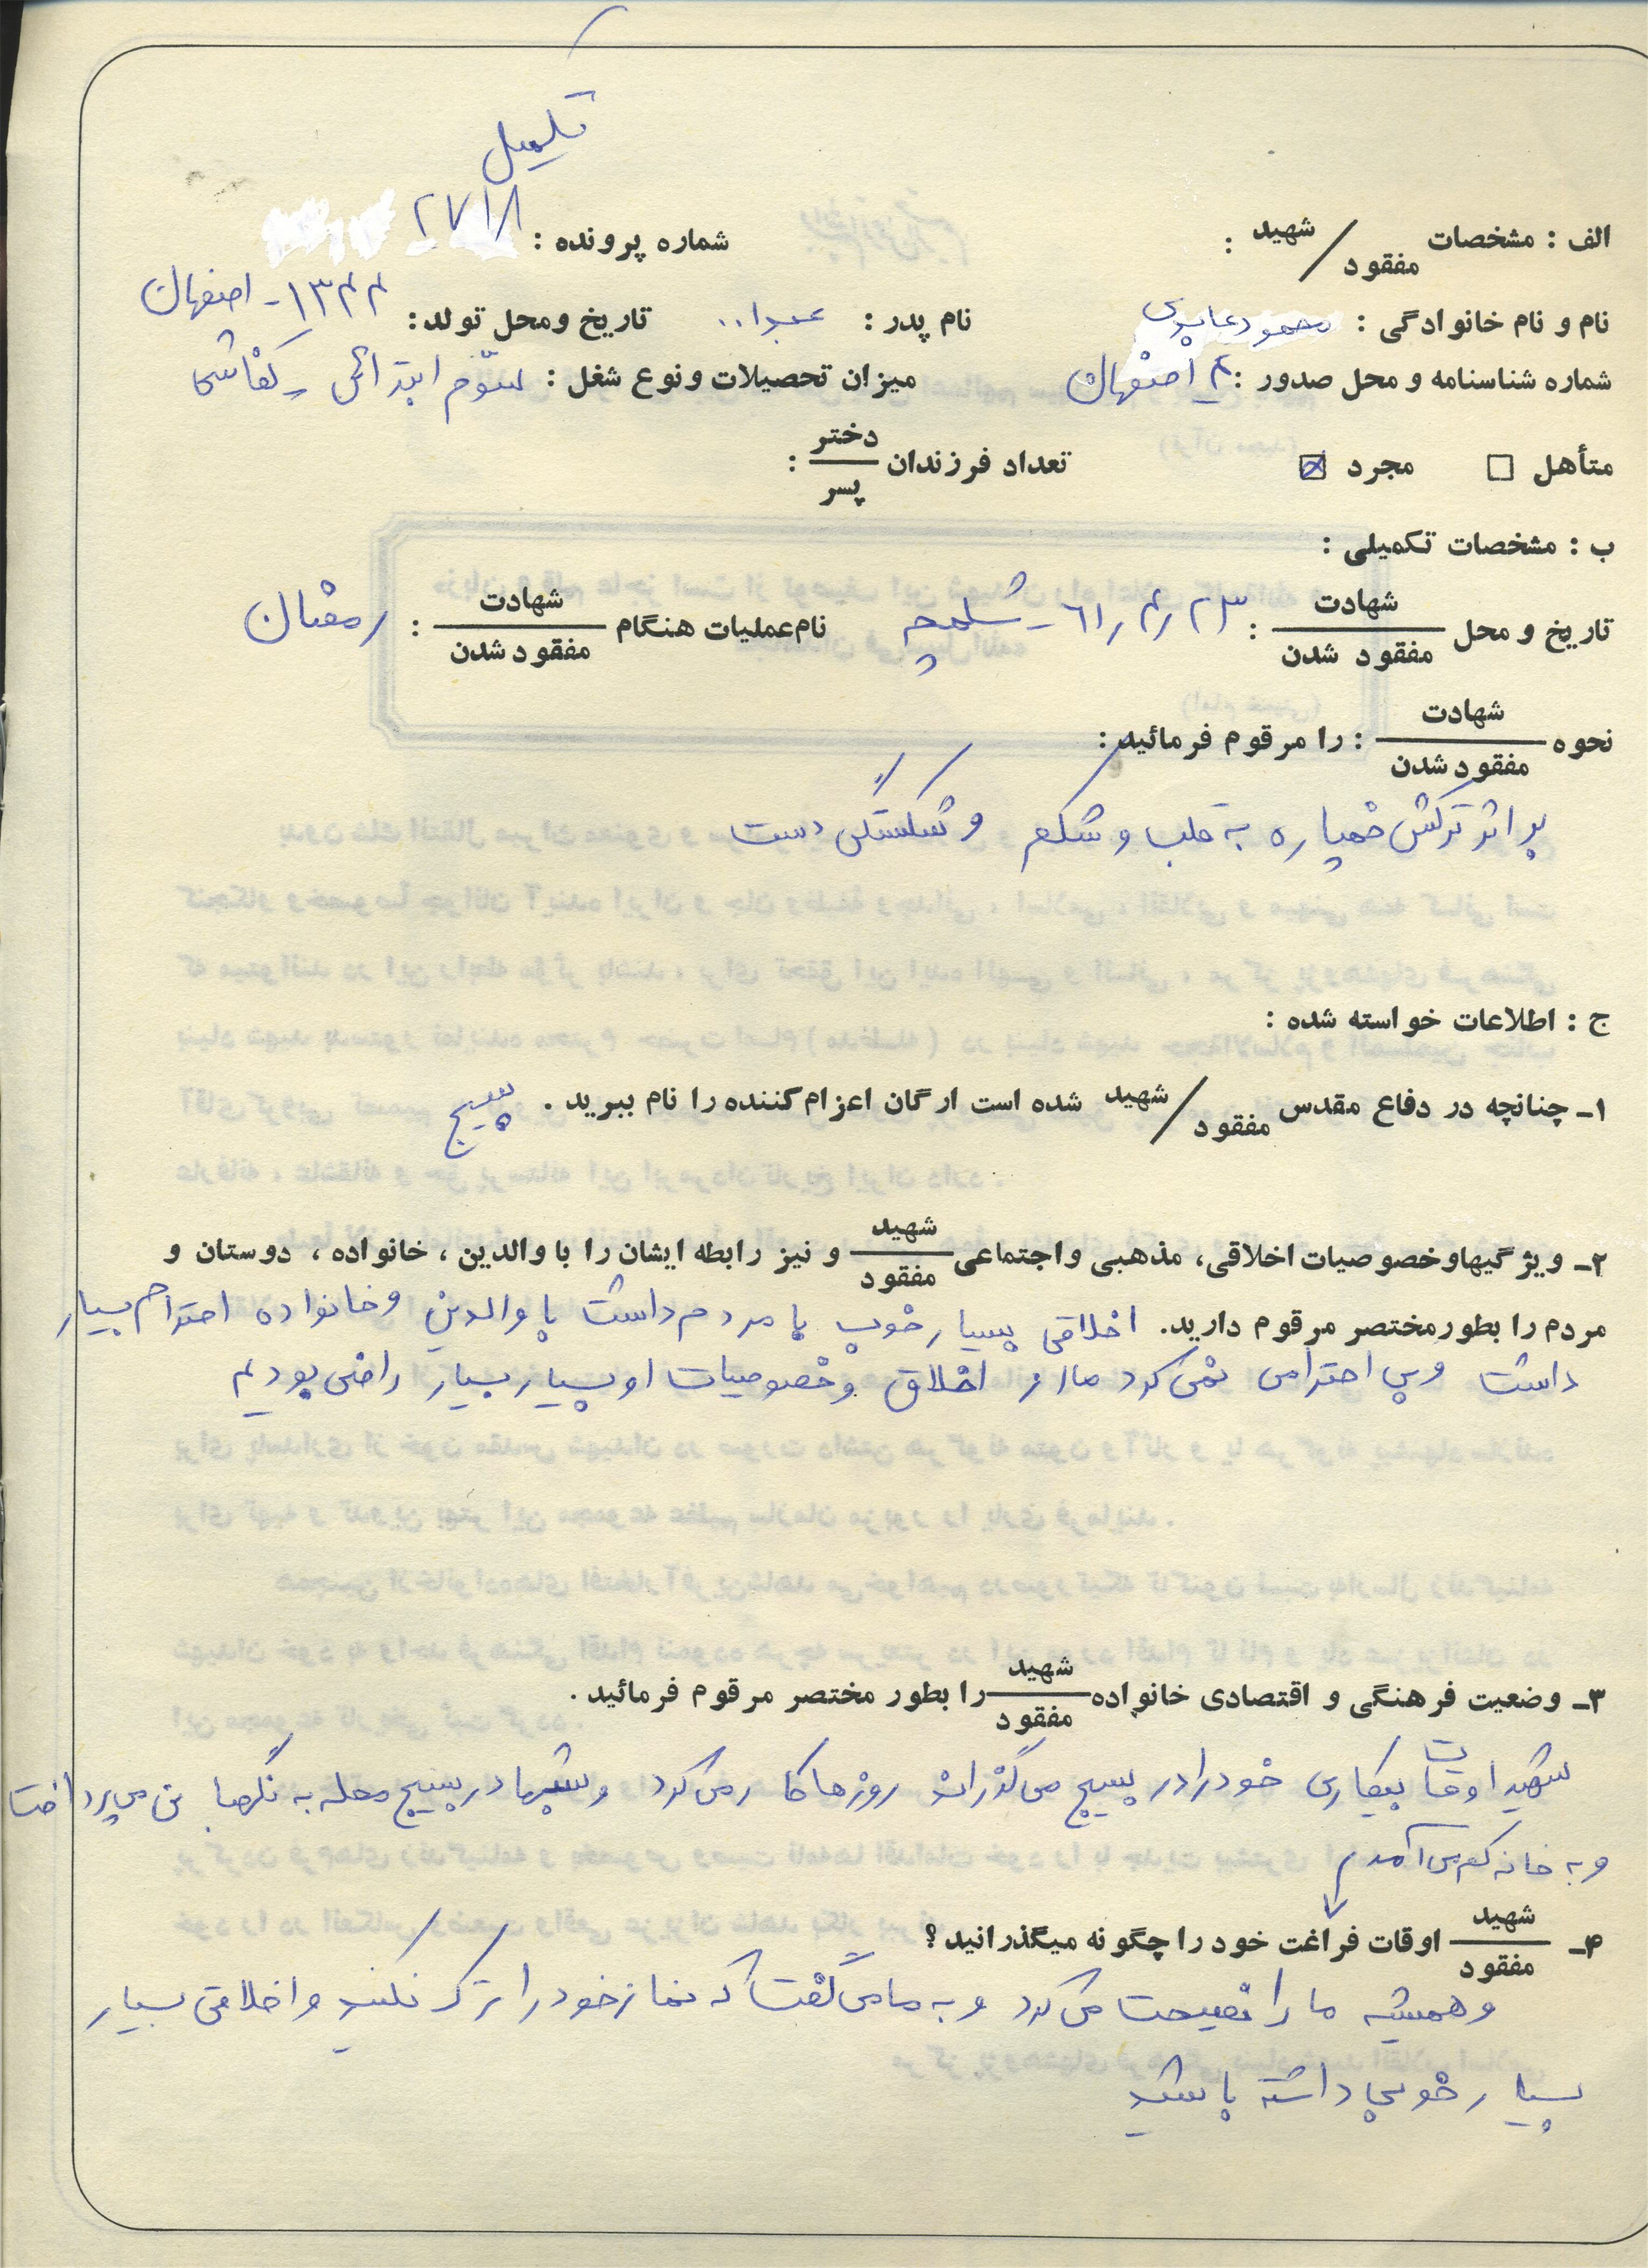 تکمیل
الف : مشخصات شهید / مفقود : شماره پرونده : ۲۷۱۸
نام و نام خانوادگی : محمود عابدی نام پدر : عبدا.. تاریخ ومحل تولد : ۱۳۴۴ - اصفهان
شماره شناسنامه و محل صدور : اصفهان میزان تحصیلات ونوع شغل : سوّم ابتدائی - کفاشی
متأهل ☐ مجرد ☒ تعداد فرزندان دختر / پسر :
ب : مشخصات تکمیلی :
تاریخ و محل شهادت / مفقود شدن : ۶۱/۴/۲۳ - شلمچه نام عملیات هنگام شهادت / مفقود شدن : رمضان
نحوه شهادت / مفقود شدن : را مرقوم فرمائید :
بر اثر ترکش خمپاره به قلب و شکم و شکستگی دست
ج : اطلاعات خواسته شده :
۱- چنانچه در دفاع مقدس شهید / مفقود شده است ارگان اعزام کننده را نام ببرید . بسیج
۲- ویژگیهاوخصوصیات اخلاقی، مذهبی واجتماعی شهید / مفقود و نیز رابطه ایشان را با والدین ، خانواده ، دوستان و
مردم را بطورمختصر مرقوم دارید. اخلاقی بسیار خوب با مردم داشت با والدین و خانواده احترام بسیار
داشت و بی احترامی نمی کرد ما از اخلاق و خصوصیات او بسیار بسیار راضی بودیم
۳- وضعیت فرهنگی و اقتصادی خانواده شهید / مفقود را بطور مختصر مرقوم فرمائید .
شهید اوقات بیکاری خود را در بسیج می گذراند روزها کار می کرد و شبها در بسیج محله به نگهبانی می پرداخت
و به خانه کم می آمد
۴- شهید / مفقود اوقات فراغت خود را چگونه میگذرانید؟
و همیشه ما را نصیحت می کرد و به ما می گفت که نماز خود را ترک نکنید و اخلاقی بسیار
بسیار خوبی داشته باشید